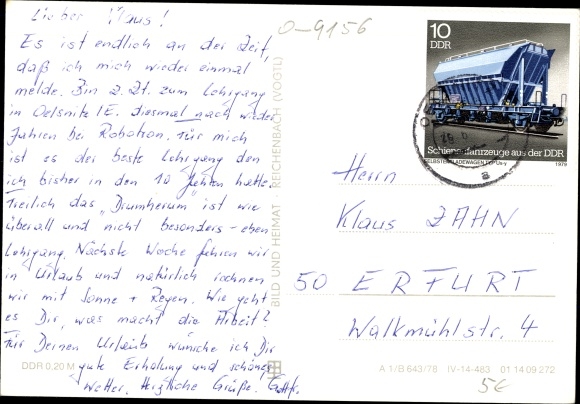 Lieber Klaus!
Es ist endlich an der Zeit,
daß ich mich wieder einmal
melde. Bin z. Zt. zum Lehrgang
in Oelsnitz / E. diesmal nach
Jahren bei Robotron. Für mich
ist es der beste Lehrgang den
ich bisher in den 10 Jahren hatte.
Freilich das "Drumherum" ist wie
überall und nicht besonders - eben
Lehrgang. Nächste Woche fahren wir
in Urlaub und natürlich rechnen
wir mit Sonne + Regen. Wie geht
es Dir, was macht die Arbeit?
Für Deinen Urlaub wünsche ich Dir
gute Erholung und schönes
Wetter. Herzliche Grüße.
DDR 0.20 M
0-9156
BILD UND HEIMAT REICHENBACH (VOGTL)
10
DDR
Schienenfahrzeuge aus der DDR
1979
Herrn
Klaus ZAHN
50 ERFURT
Walkmühlstr. 4
A 1/B 643/78 IV-14-483 01 14 09 272
5€